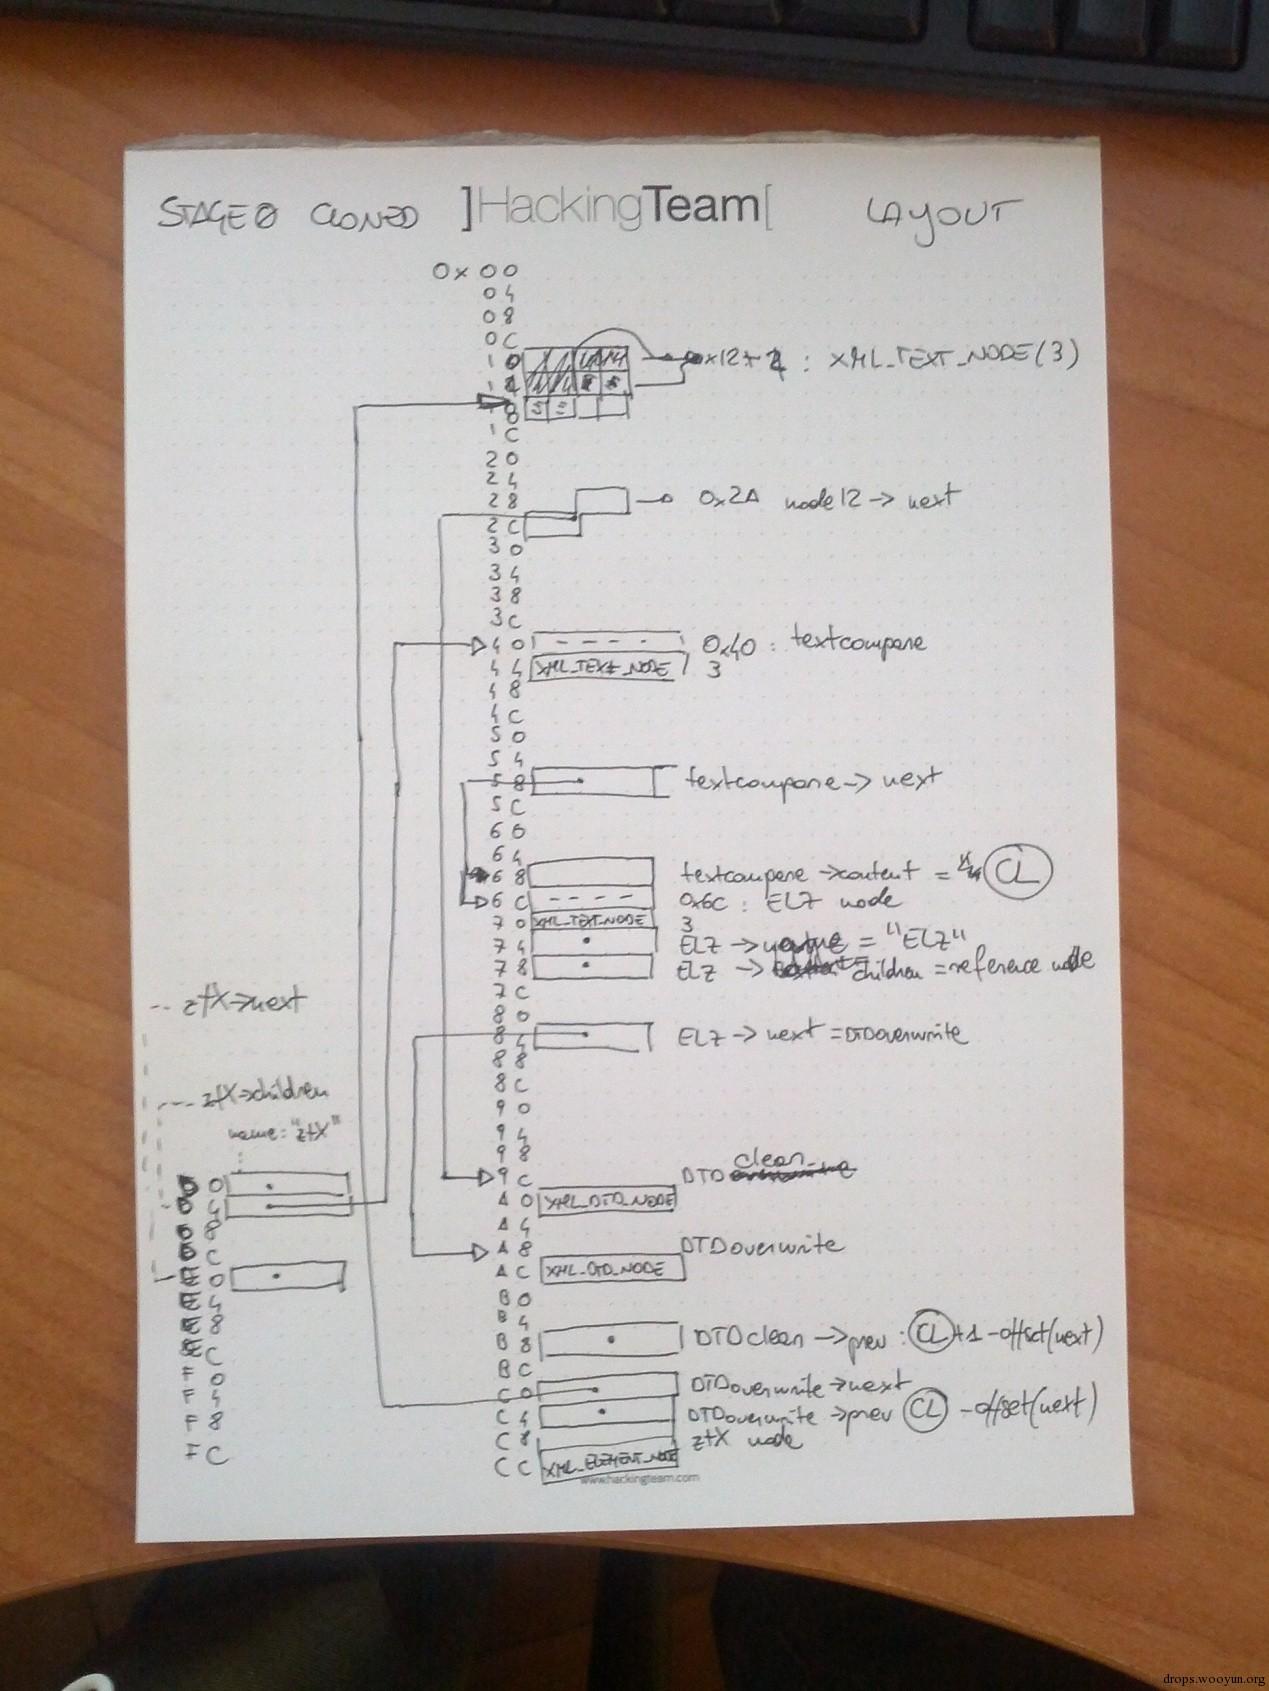 STAGE0 CLONED ]HackingTeam[ LAYOUT
0x 00
04
08
0C
10 0x12+2 : XML_TEXT_NODE(3)
14
18
1C
20
24
28 0x2A node12 -> next
2C
30
34
38
3C
40 0x40 : textcompare
44 XML_TEXT_NODE 3
48
4C
50
54
58 textcompare -> next
5C
60
64
68 textcompare -> content = CL
6C 0x6C : ELZ node
70 XML_TEXT_NODE 3
74 ELZ -> = "ELZ"
78 ELZ -> children = reference node
7C
80
84 ELZ -> next = DTDoverwrite
88
8C
90
94
98
9C DTD clean
A0 XML_DTD_NODE
A4
A8 DTDoverwrite
AC XML_DTD_NODE
B0
B4
B8 DTDclean -> prev : CL+1 -offset(next)
BC
C0 DTDoverwrite -> next
C4 DTDoverwrite -> prev CL -offset(next)
C8 ztX node
CC XML_ELEMENT_NODE
www.hackingteam.com
ztX->next
ztX->children
name: "ztX"
D0
D4
D8
DC
E0
E4
E8
EC
F0
F4
F8
FC
drops.wooyun.org